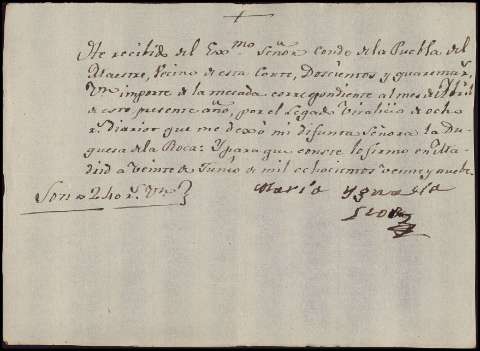 He recibido del Exmo Señor Conde de la Puebla del
Maestre, Vecino de esta Corte, Doscientos y quarenta rs.
Vn importe de la mesada correspondiente al mes de Abril
de este presente año, por el Legado Vitalicio de ocho
rs. Diarios que me dexó mi difunta Señora la Du-
quesa de la Roca: Y para que conste lo firmo en Ma-
drid a veinte de Junio de mil ochocientos veinte y nueve
Maria Ygnacia
Son 240 rs. Vn